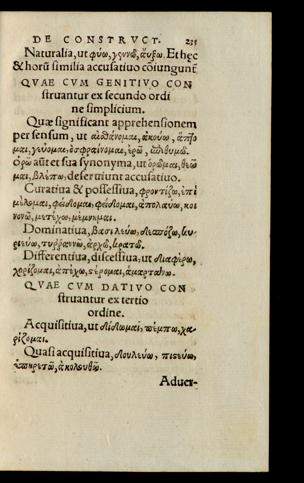 DE CONSTRVCT. 235
Naturalia, ut φύω, γεννῶ, ἄυξω. Et hęc
& horū similia accusatiuo coiungunt̃
QVAE CVM GENITIVO CON
struantur ex secundo ordi
ne simplicium.
Quæ significant apprehensionem
per sensum, ut αἰσθάνομαι, ἀκούω, ἅπτο
μαι, γεύομαι, ὀσφραίνομαι, ἐρῶ, ἐπιθυμῶ.
ὁρῶ aūt et sua synonyma, ut ὁρῶμαι, θεῶ
μαι, βλέπω, deseruiunt accusatiuo.
Curatiua & possessiua, φροντίζω, ἐπι
μέλομαι, φείδομαι, φείδομαι, ἀπολαύω, κοι
νωνῶ, μετέχω, μέμνημαι.
Dominatiua, βασιλεύω, δεσπόζω, κυ
ριεύω, τυῤῥαννῶ, ἀρχῶ, κρατῶ.
Differentiua, discessiua, ut διαφέρω,
χορίζομαι, ἀπέχω, ςέρομαι, ἁμαρτάνω.
QVAE CVM DATIVO CON
struantur ex tertio
ordine.
Acquisitiua, ut δίδωμαι, πέμπω, χα
ρίζομαι.
Quasi acquisitiua, δουλεύω, πιςεύω,
ὑπηρετῶ, ἀκολουθῶ.
Aduer-